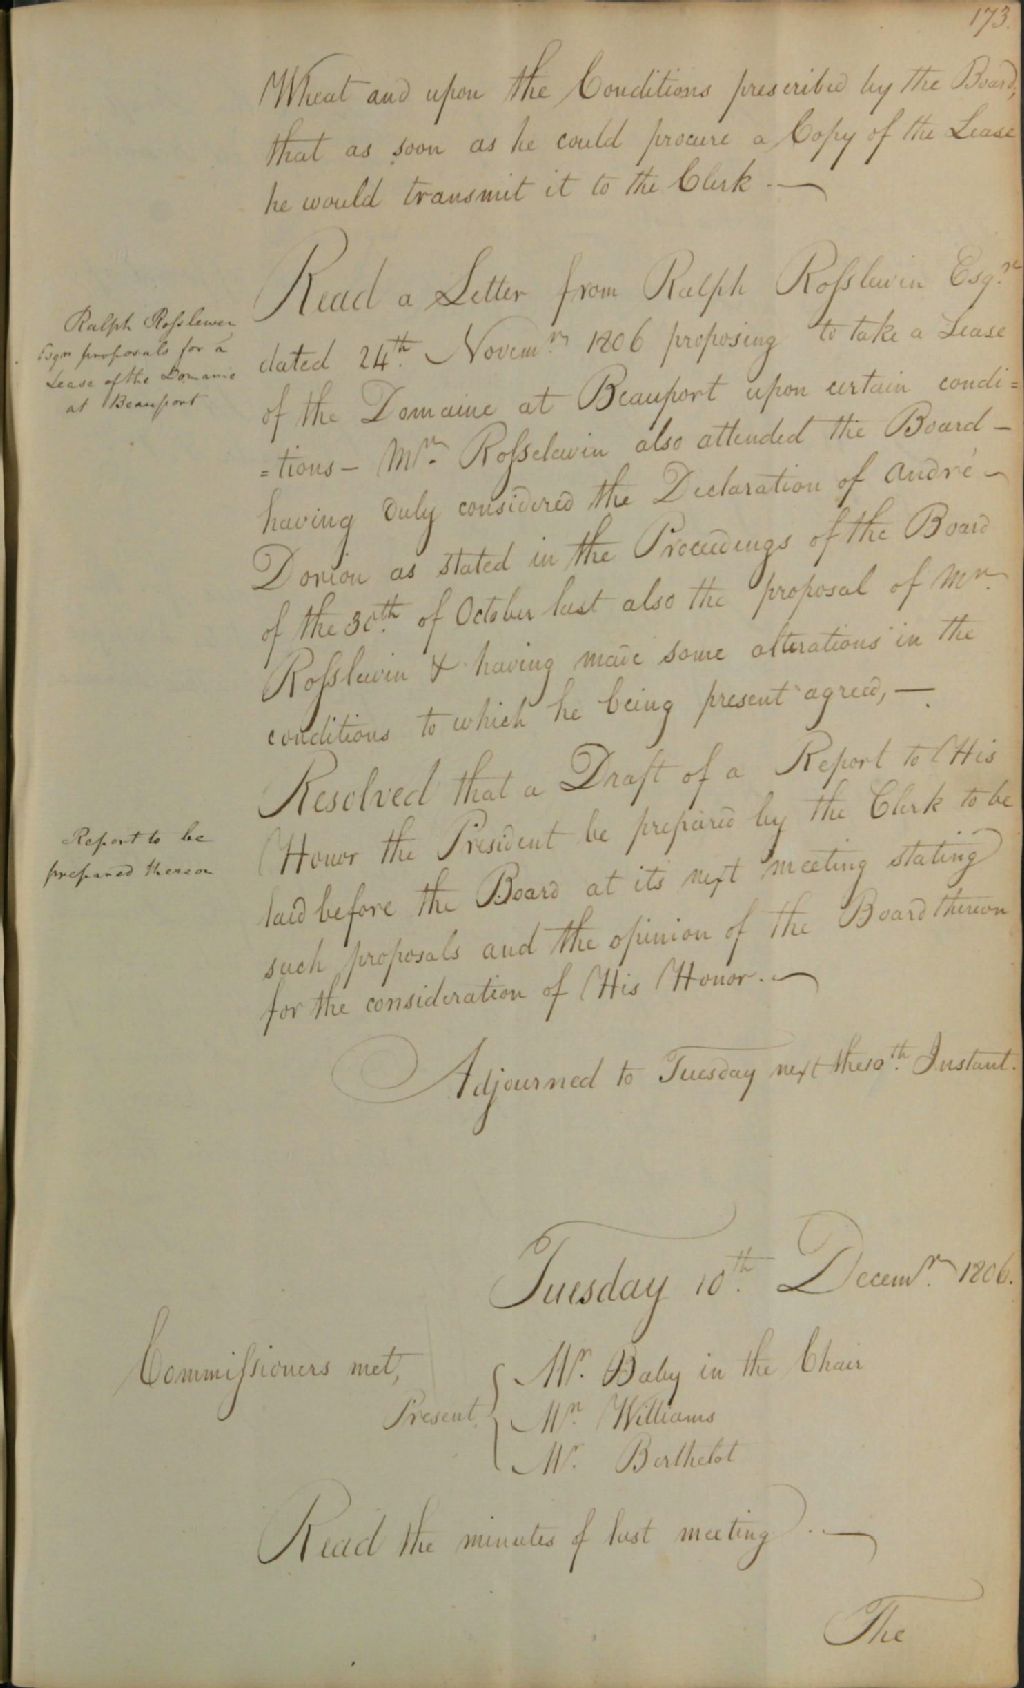 173.
Wheat and upon the Conditions prescribed by the Board,
that as soon as he could procure a Copy of the Lease
he would transmit it to the Clerk. —
Read a Letter from Ralph Rosslewin Esqre
Ralph Rosslewin
Esqre proposals for a
Lease of the Domaine
at Beauport
dated 24th. Novemr. 1806 proposing to take a Lease
of the Domaine at Beauport upon certain condi=
=tions — Mr. Rosselewin also attended the Board —
having duly considered the Declaration of André —
Dorion as stated in the Proceedings of the Board
of the 30th. of October last also the proposal of Mr.
Rosslewin & having made some alterations in the
conditions to which he being present agreed, —.
Resolved that a Draft of a Report to His
Report to be
prepared thereon
Honor the President be prepared by the Clerk to be
laid before the Board at its next meeting stating
such proposals and the opinion of the Board thereon
for the consideration of His Honor. —
Adjourned to Tuesday next the 10th. Instant.
Tuesday 10th. Decemr. 1806.
Commissioners met,
Present
Mr. Baby in the Chair
Mr. Williams
Mr. Berthelot
Read the minutes of last meeting . —
The